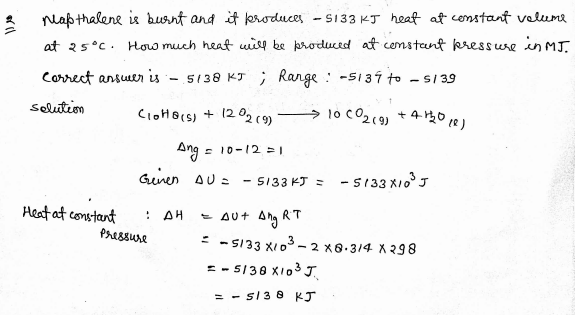 2 Napthalene is burnt and it produces -5133 KJ heat at constant volume
at 25°C. How much heat will be produced at constant pressure in MJ.
Correct answer is - 5138 KJ ; Range : -5137 to -5139
Solution C10H8(s) + 12O2(g) → 10CO2(g) + 4H2O(l)
Δng = 10-12 = 1
Given ΔU = -5133 KJ = -5133×10³ J
Heat at constant Pressure : ΔH = ΔU + Δng RT
= -5133 ×10³ - 2 × 8.314 × 298
= -5138 ×10³ J
= - 5138 KJ